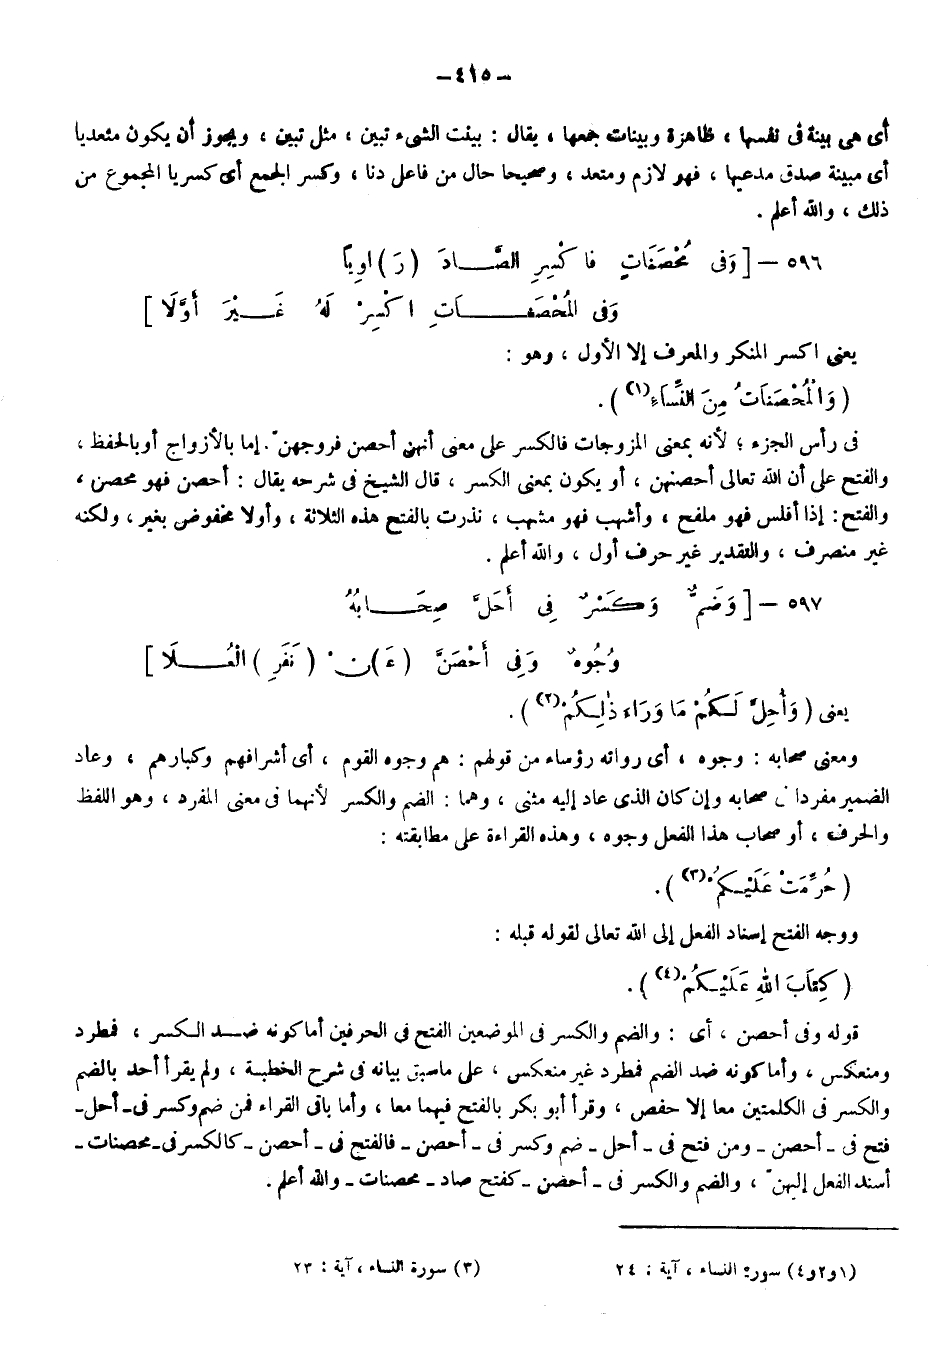 -٤١٥-
أى هى بينة فى نفسها ، ظاهرة وبينات جمعها ، يقال : بينت الشىء تبين ، مثل تبين ، ويجوز أن يكون متعديا
أى مبينة صدق مدعيها ، فهو لازم ومتعد ، وصحيحا حال من فاعل دنا ، وكسر الجمع أى كسريا المجموع من
ذلك ، والله أعلم .
٥٩٦ – [ وَفى مُحْصَنَاتٍ فا كْسِرِ الصَّـادَ (رَ) اوِياً
وَفى المُحْصَنَـاتِ اكْسِرْ لَهُ غَـيْرَ أوَّلَا ]
يعنى اكسر المنكر والمعرف إلا الأول ، وهو :
( وَالْمُحْصَنَاتُ مِنَ النِّسَاءِ(١) ) .
فى رأس الجزء ؛ لأنه بمعنى المزوجات فالكسر على معنى أنهن أحصن فروجهنّ . إما بالأزواج أوبالحفظ ،
والفتح على أن الله تعالى أحصنهن ، أو يكون بمعنى الكسر ، قال الشيخ فى شرحه يقال : أحصن فهو محصن ،
والفتح : إذا أفلس فهو ملفج ، وأشهب فهو مشهب ، نذرت بالفتح هذه الثلاثة ، وأولا مخفوض بغير ، ولكنه
غير منصرف ، والتقدير غير حرف أول ، والله أعلم .
٥٩٧ – [ وَضَمٌّ وَكَسْرٌ فِى أَحَلَّ صِحَـابُهُ
وُجُوهٌ وَفِى أَحْصَنَّ (عَ)نْ (نَفَرِ) الْعُـلَا ]
يعنى ( وَأُحِلَّ لَكُمْ مَا وَرَاءَ ذٰلِكُمْ(٢) ) .
ومعنى صحابه : وجوه ، أى رواته رؤساء من قولهم : هم وجوه القوم ، أى أشرافهم وكبارهم ، وعاد
الضمير مفردا صحابه وإن كان الذى عاد إليه مثنى ، وهما : الضم والكسر لأنهما فى معنى المفرد ، وهو اللفظ
والحرف ، أو صحاب هذا الفعل وجوه ، وهذه القراءة على مطابقته :
( حُرِّمَتْ عَلَيْكُمْ(٣) ) .
ووجه الفتح إسناد الفعل إلى الله تعالى لقوله قبله :
( كِتَابَ اللهِ عَلَيْكُمْ(٤) ) .
قوله وفى أحصن ، أى : والضم والكسر فى الموضعين الفتح فى الحرفين أما كونه ضـد الـكسر ، فمطرد
ومنعكس ، وأما كونه ضد الضم فمطرد غير منعكس ، على ماسبق بيانه فى شرح الخطبة ، ولم يقرأ أحد بالضم
والكسر فى الكلمتين معا إلا حفص ، وقرأ أبو بكر بالفتح فيهما معا ، وأما باقى القراء فمن ضم وكسر فى - أحل -
فتح فى - أحصن - ومن فتح فى - أحل - ضم وكسر فى - أحصن - فالفتح فى - أحصن - كالكسر فى - محصنات -
أسند الفعل إليهنّ ، والضم والكسر فى - أحصن - كفتح صاد - محصنات - والله أعلم .
(١و٢و٤) سورة النساء ، آية : ٢٤
(٣) سورة النساء ، آية : ٢٣